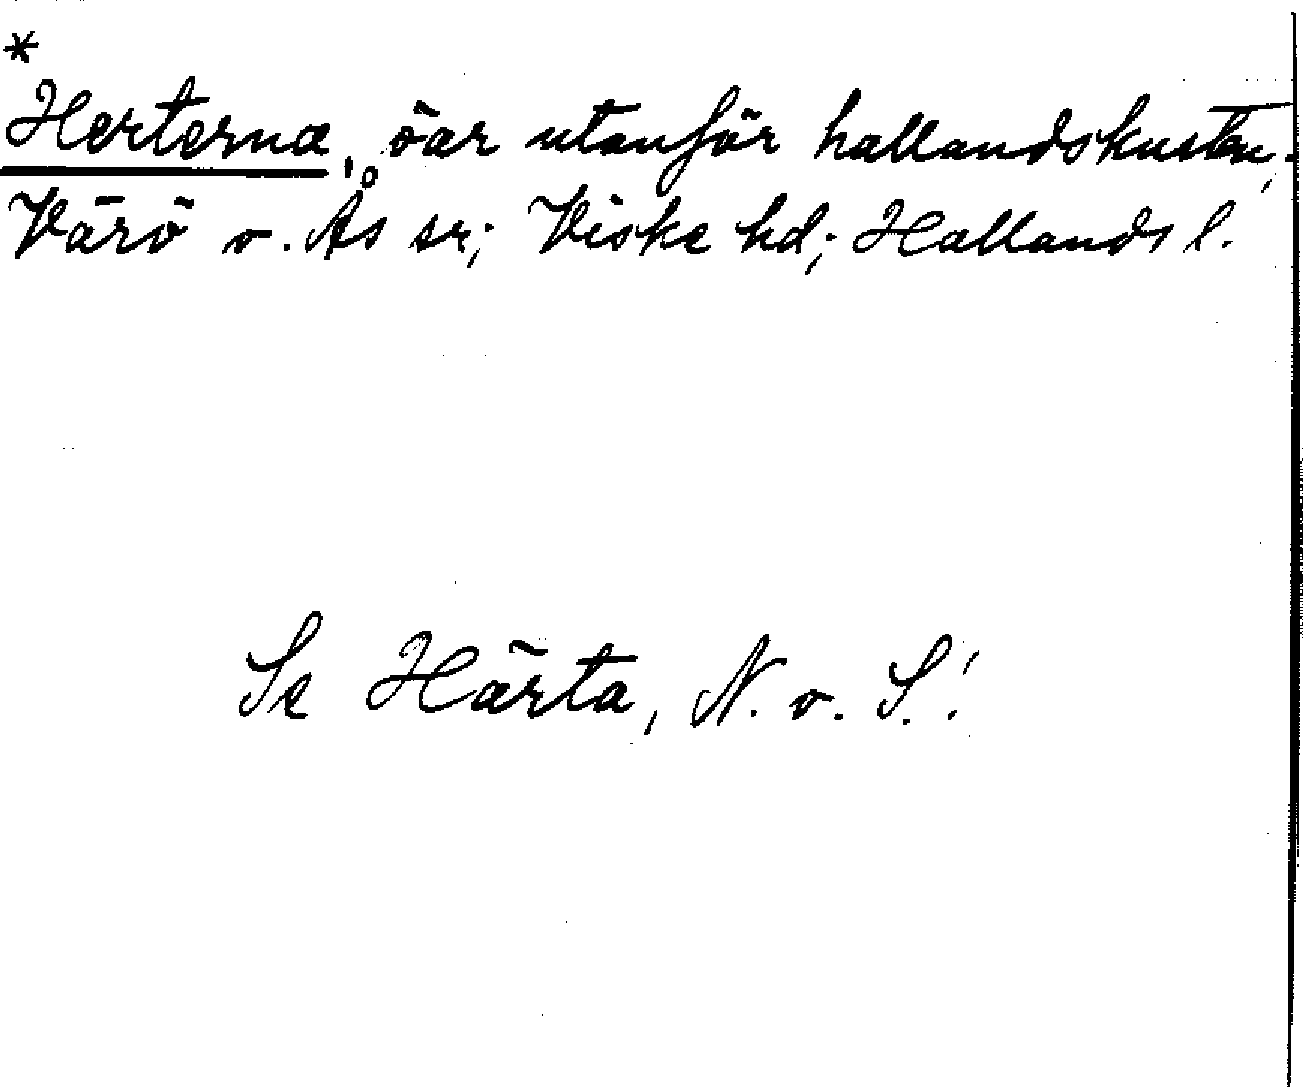 *
Herterna, öar utanför hallandskusten,
Värö o. Ås sr; Viske hd; Hallands l.
Se Härta, N. o. S.!